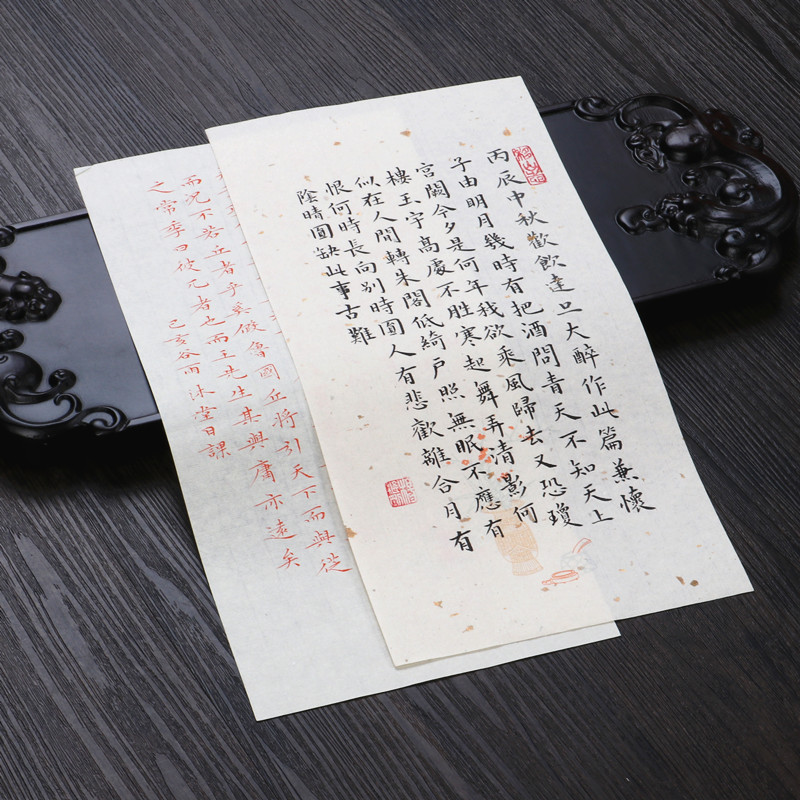 丙辰中秋歡飲達旦大醉作此篇兼懷
子由明月幾時有把酒問青天不知天上
宮闕今夕是何年我欲乘風歸去又恐瓊
樓玉宇高處不胜寒起舞弄清影何
似在人間轉朱閣低綺戶照無眠不應有
恨何時長向別時圓人有悲歡離合月有
陰晴圓缺此事古難
而況不若丘者乎奚假魯國丘將引天下而與從
之常季曰彼兀者也而王先生其與庸亦遠矣
己亥谷雨沐堂日課